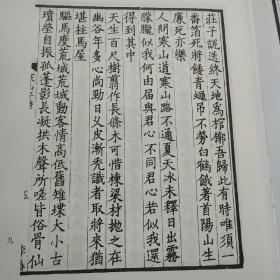 莊子說送終天地為棺槨吾歸此有時唯須一
番箔死將餧青蠅弔不勞白鶴餓著首陽山生
廉死亦樂
人問寒山道寒山路不通夏天冰未釋日出霧
朦朧似我何由屆與君心不同君心若似我還
得到其中
天生百尺樹剪作長條木可惜棟梁材拋之在
幽谷年多心尚勁日久皮漸禿識者取將來猶
堪柱馬屋
驅馬度荒城荒城動客情高低舊雉堞大小古
墳塋自振孤蓬影長凝拱木聲所嗟皆俗骨仙
九